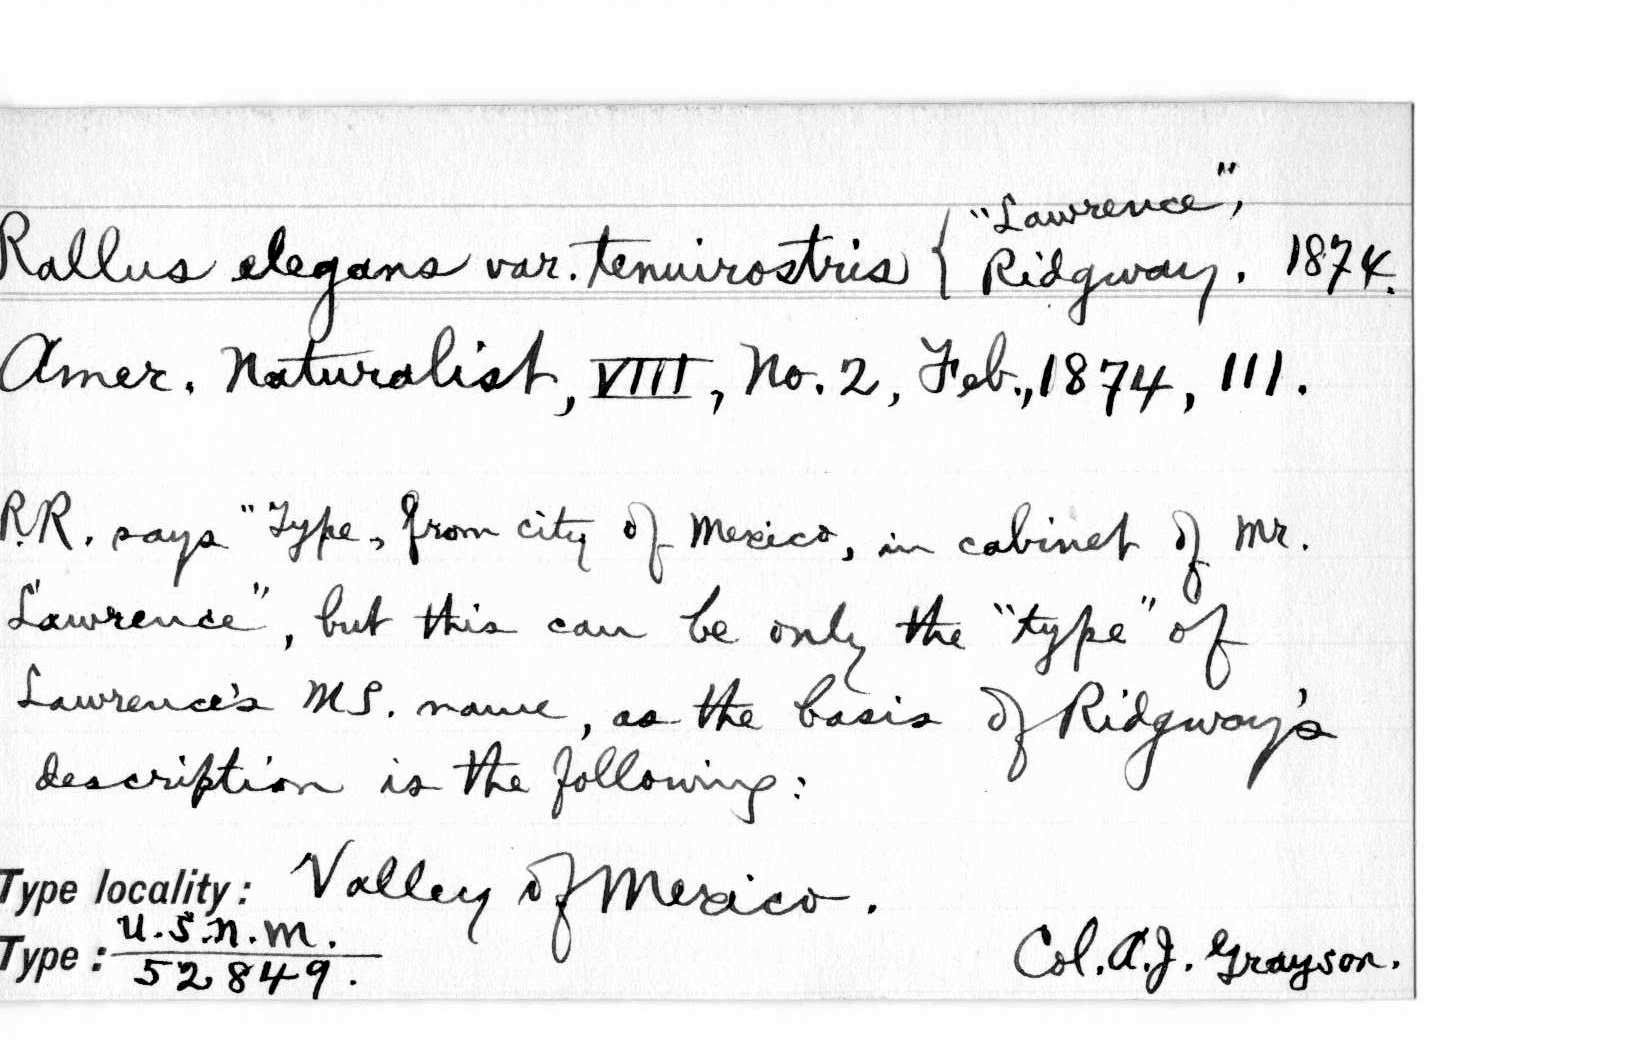 Rallus elegans var. tenuirostris { "Lawrence",
Ridgway. 1874.
Amer. Naturalist, VIII, No. 2, Feb., 1874, 111.
R.R. says "Type, from city of Mexico, in cabinet of Mr.
Lawrence", but this can be only the "type" of
Lawrence's MS. name, as the basis of Ridgway's
description is the following:
Type locality: Valley of Mexico.
Type: U.S.N.M.
52849.
Col. A.J. Grayson.